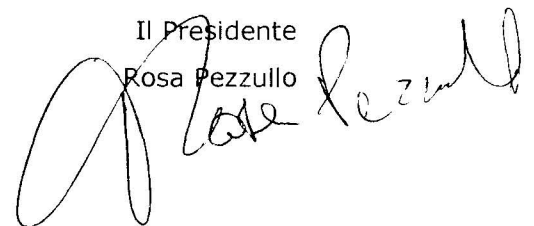 Il Presidente
Rosa Pezzullo
Rosa Pezzullo